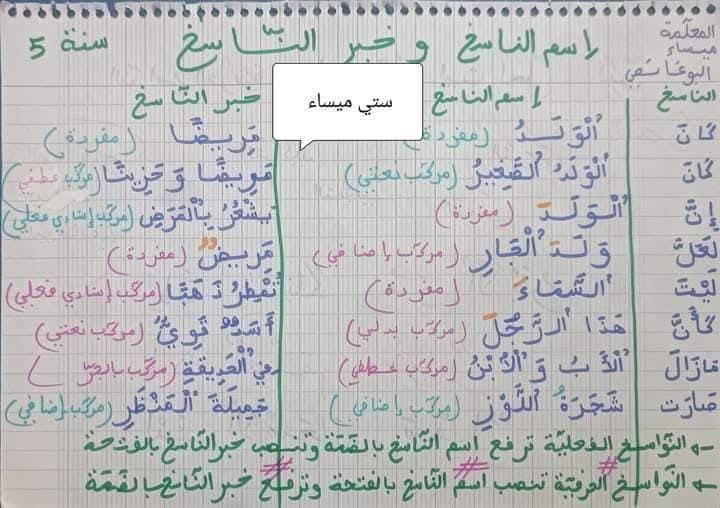 المعلّمة
ميساء
البوغانمي
إسم الناسخ و خبر النّاسخ سنة 5
ستي ميساء
الناسخ إسم الناسخ خبر النّاسخ
كَانَ اَلْوَلَدُ (مفردة) مَرِيضًا (مفردة)
كَانَ اَلْوَلَدُ اَلصَّغِيرُ (مركّب نعتي) مَرِيضًا وَ حَزِينًا (مركّب عطفي)
إِنَّ اَلْوَلَدَ (مفردة) يَشْعُرُ بِالْمَرَضِ (مركّب إسنادي فعلي)
لَعَلَّ وَلَدَ اَلْجَارِ (مركّب إضافي) مَرِيضٌ (مفردة)
لَيْتَ اَلسَّمَاءَ (مفردة) تُمْطِرُ ذَهَبًا (مركّب إسنادي فعلي)
كَأَنَّ هَذَا اَلرَّجُلَ (مركّب بدلي) أَسَدٌ قَوِيٌّ (مركّب نعتي)
مَازَالَ اَلْأَبُ وَ اَلْاِبْنُ (مركّب عطفي) في الْحَدِيقَةِ (مركّب بالجرّ)
صَارَتْ شَجَرَةُ اَللَّوْزِ (مركّب إضافي) جَمِيلَةَ اَلْمَنْظَرِ (مركّب إضافي)
← النّواسخ الفعليّة ترفع اسم النّاسخ بالضمّة وتنصب خبر النّاسخ بالفتحة
← النّواسخ الحرفيّة تنصب اسم النّاسخ بالفتحة وترفع خبر النّاسخ بالضمّة